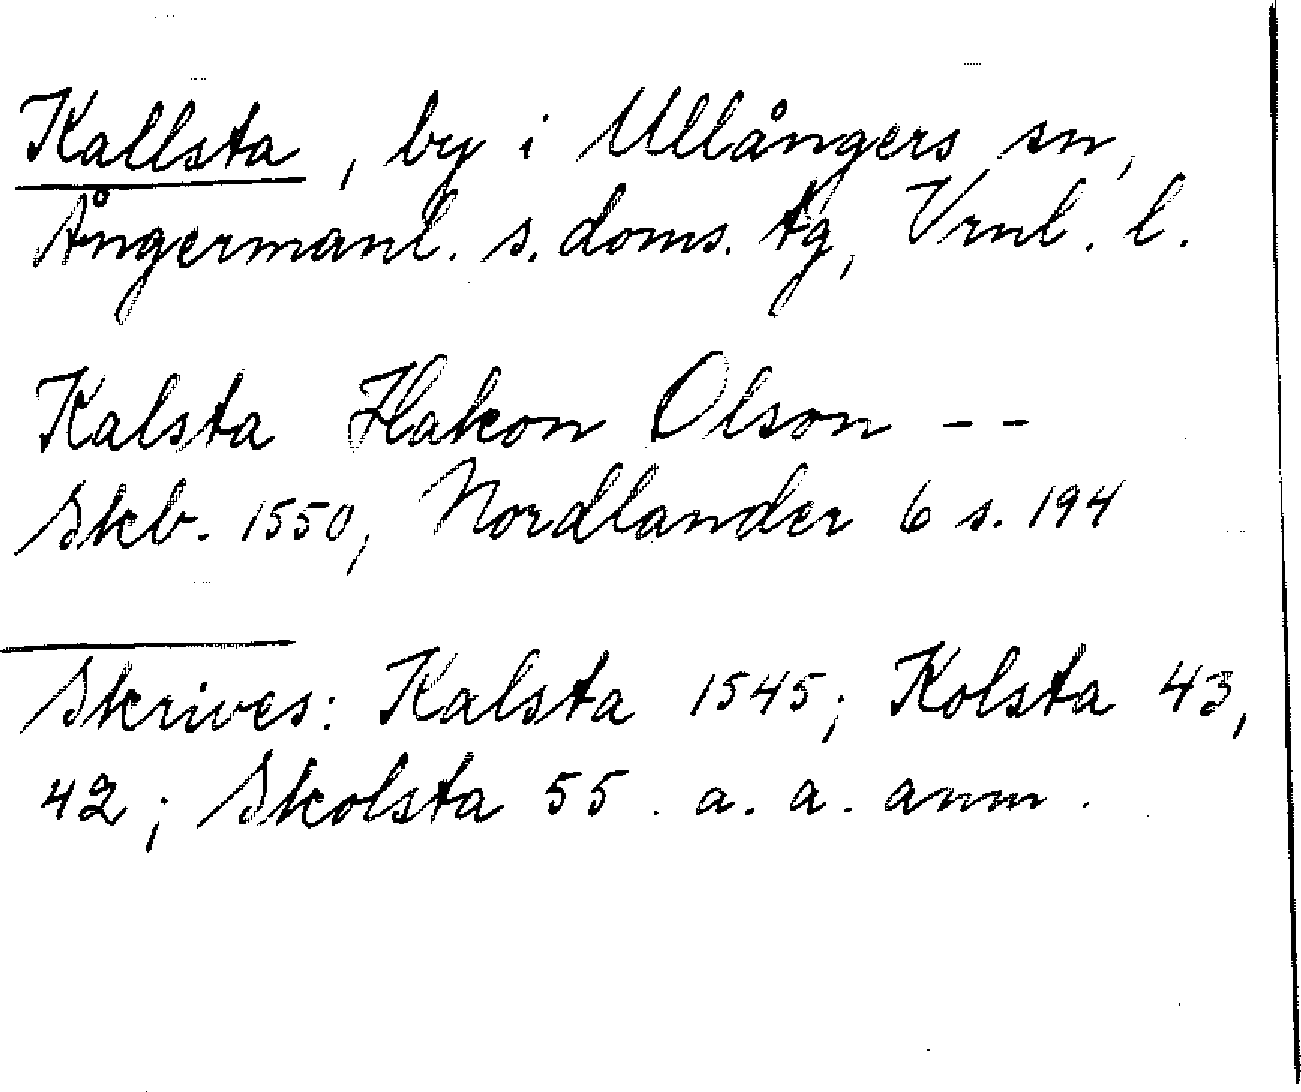 Kallsta, by i Ullångers sn,
Ångermanl. s. doms. tg, Vrnl. l.
Kalsta Hakon Olson - -
Skb. 1550, Nordlander 6 s. 194
Skrives: Kalsta 1545; Kolsta 43,
42; Skolsta 55. a. a. anm.